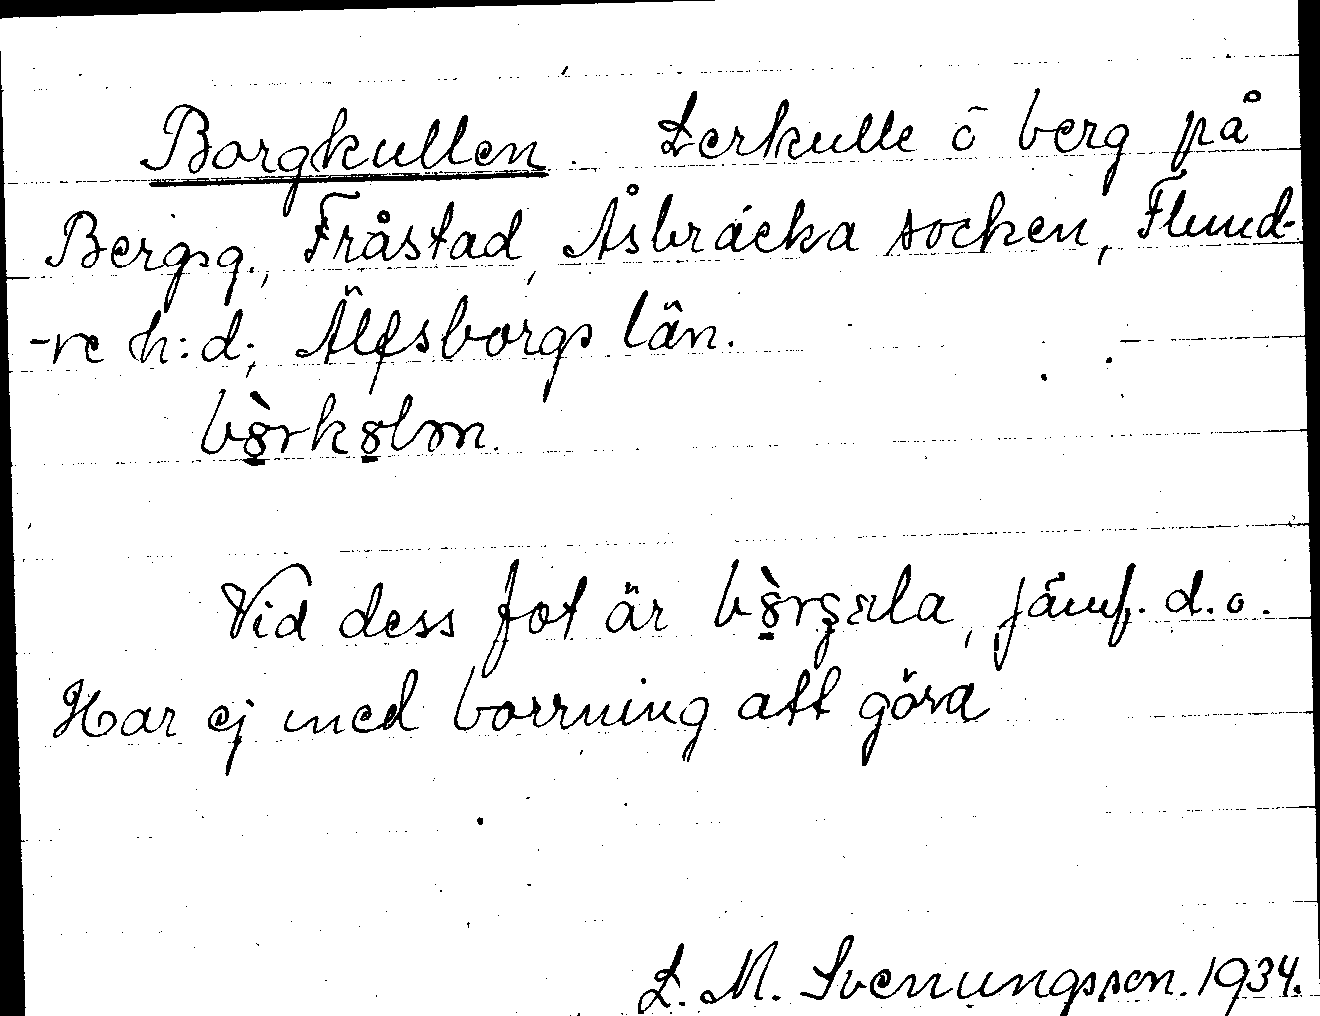 Borgkullen. Lerkulle ō berg på
Bergsg., Fråstad, Åsbräcka socken, Flund-
-re h:d; Älfsborgs län.
Vid dess fot är jämf. d.o.
Har ej med borrning att göra
L. M. Svenungsson. 1934.